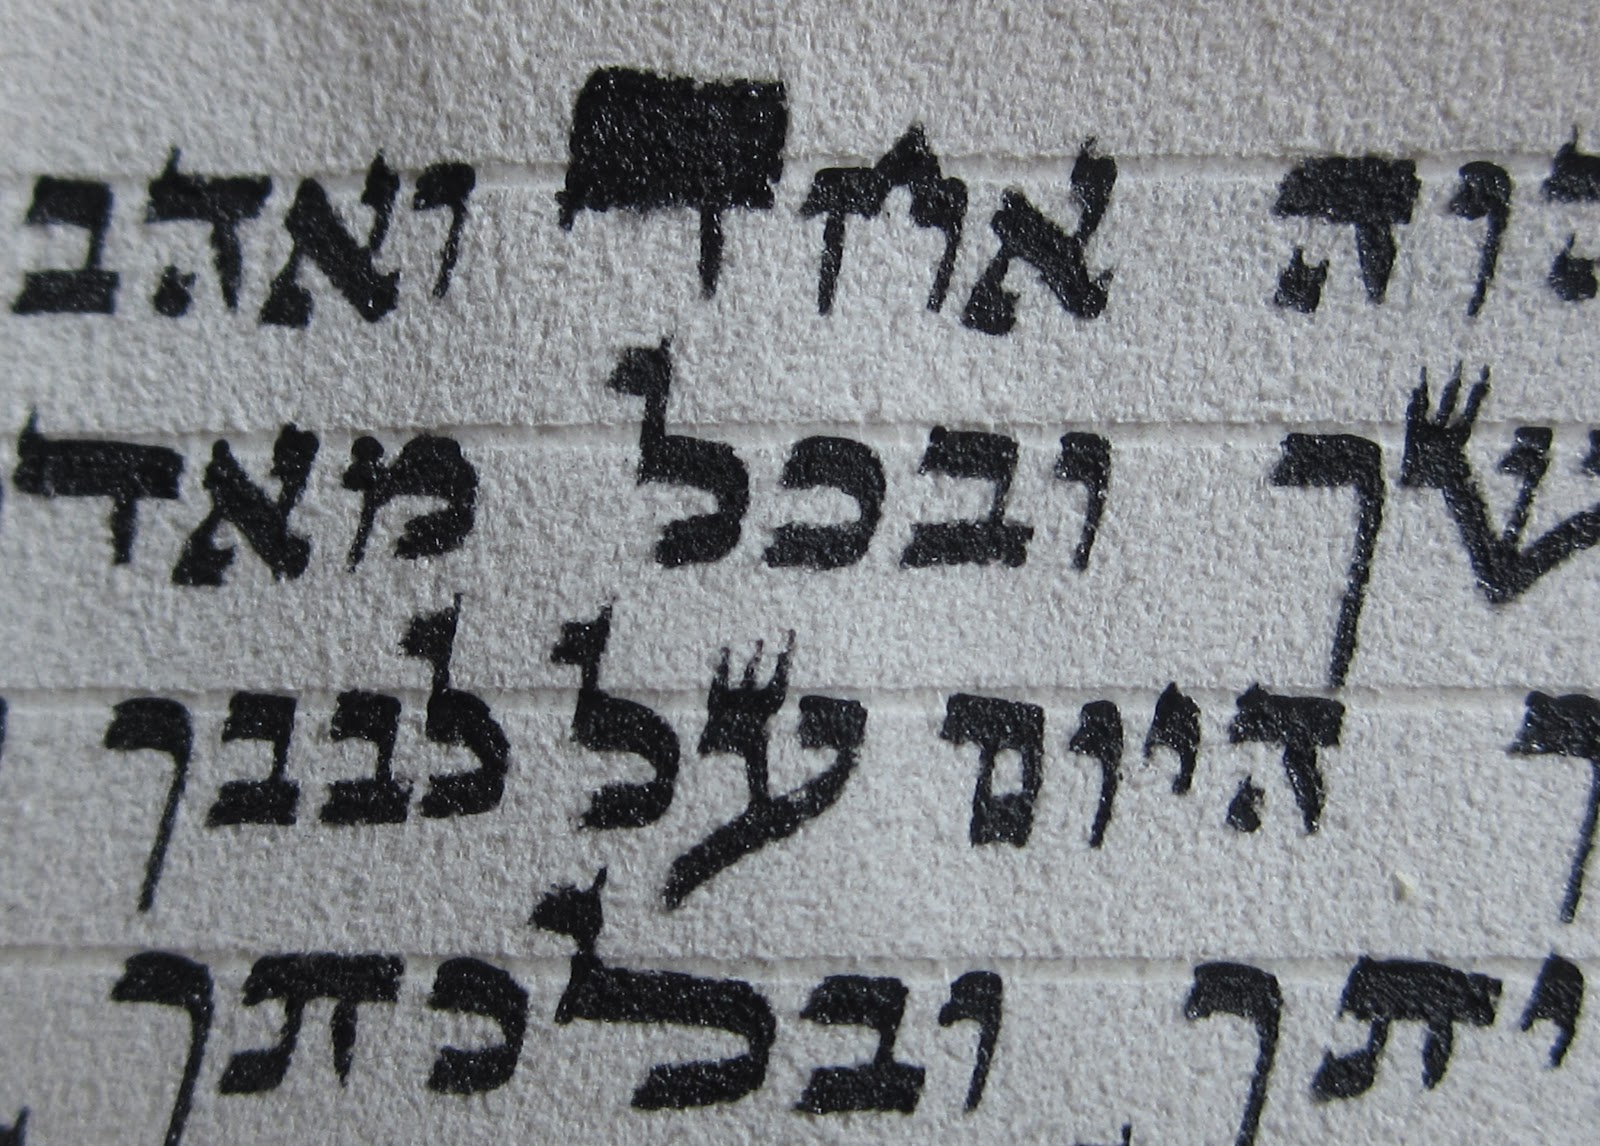 הוה אחד ואהב
שך ובכל מאד
ך היום על לבבך
יתך ובלכתך